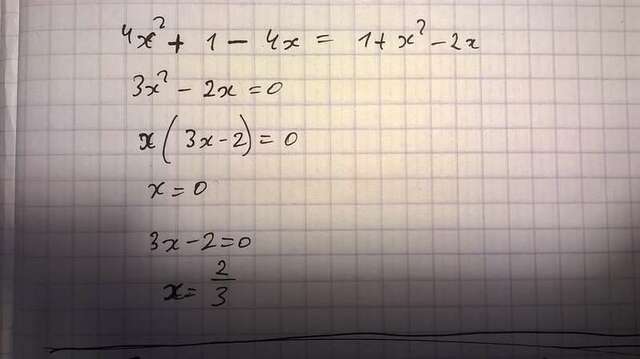 4x² + 1 - 4x = 1 + x² - 2x
3x² - 2x = 0
x(3x - 2) = 0
x = 0
3x - 2 = 0
x = 2/3